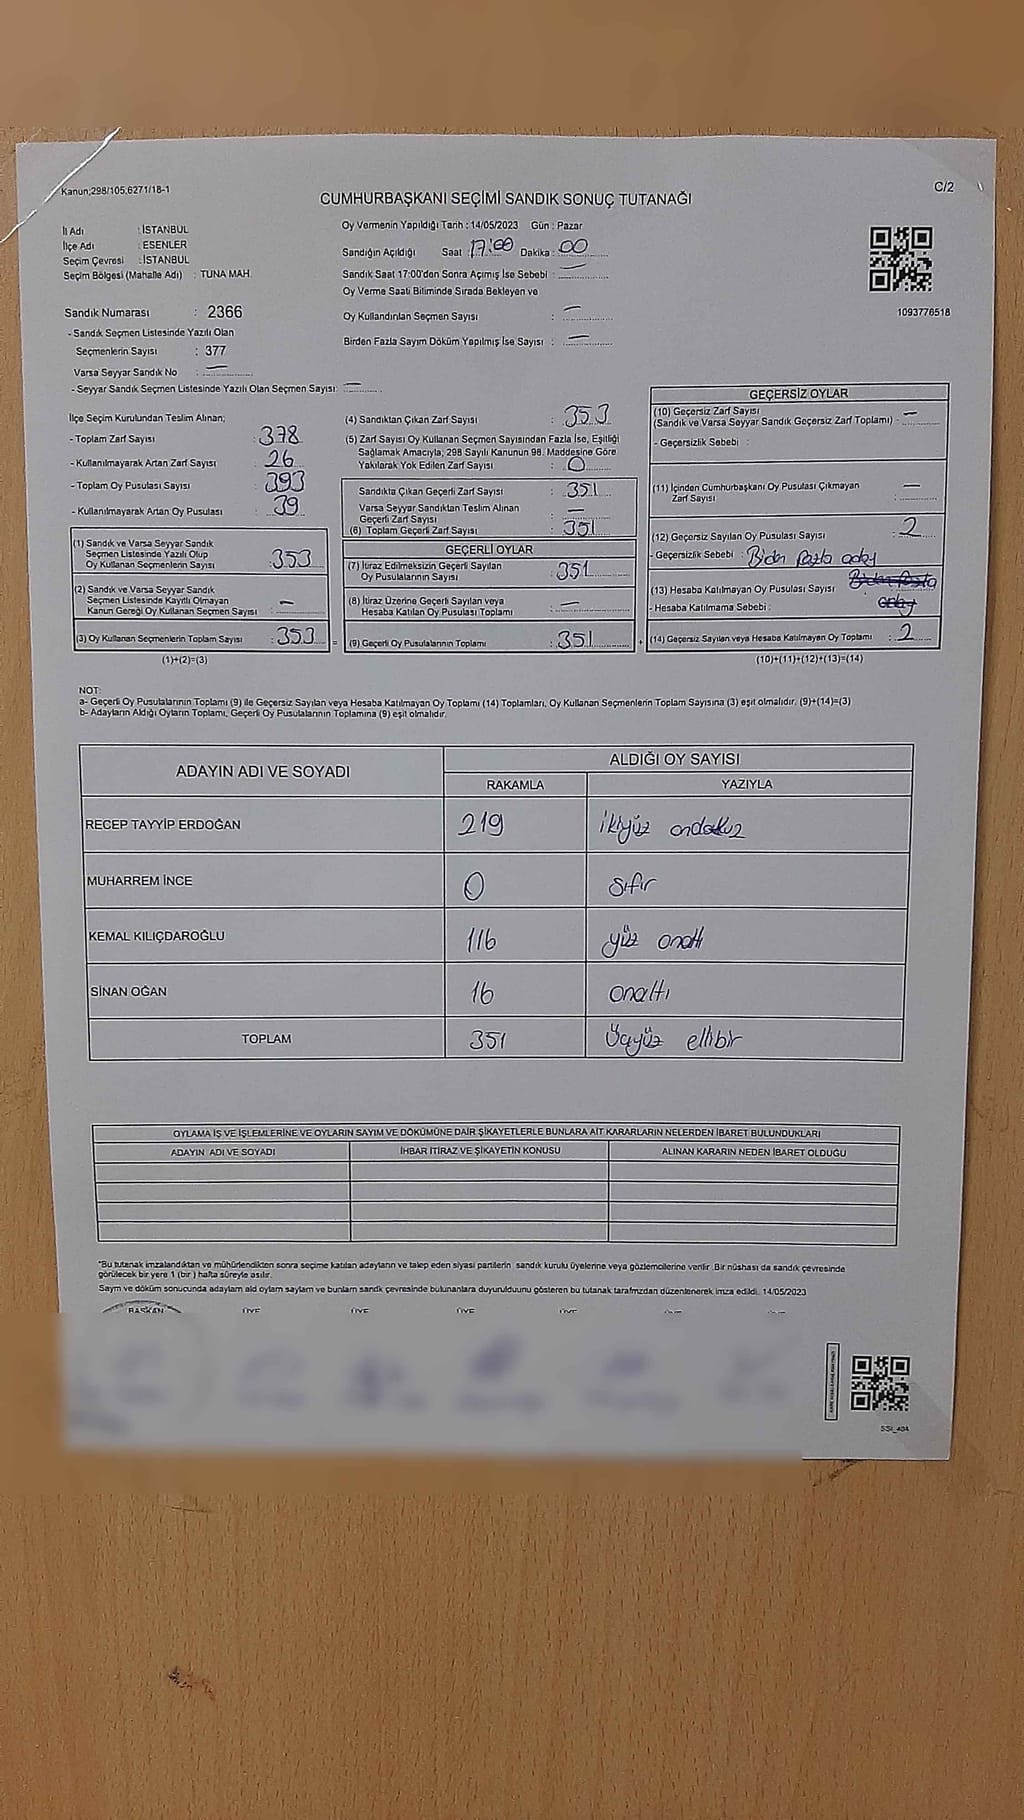 Kanun;298/105,6271/18-1
C/2
CUMHURBAŞKANI SEÇİMİ SANDIK SONUÇ TUTANAĞI
İl Adı : İSTANBUL
İlçe Adı : ESENLER
Seçim Çevresi : İSTANBUL
Seçim Bölgesi (Mahalle Adı) : TUNA MAH.
Oy Vermenin Yapıldığı Tarih : 14/05/2023 Gün : Pazar
Sandığın Açıldığı Saat 17:00 Dakika : 00
Sandık Saat 17:00'den Sonra Açımış İse Sebebi : —
Oy Verme Saati Bitiminde Sırada Bekleyen ve
Oy Kullandırılan Seçmen Sayısı : —
Birden Fazla Sayım Döküm Yapılmış İse Sayısı : —
1093776518
Sandık Numarası : 2366
- Sandık Seçmen Listesinde Yazılı Olan
Seçmenlerin Sayısı : 377
Varsa Seyyar Sandık No : —
- Seyyar Sandık Seçmen Listesinde Yazılı Olan Seçmen Sayısı: —
İlçe Seçim Kurulundan Teslim Alınan;
- Toplam Zarf Sayısı : 378
- Kullanılmayarak Artan Zarf Sayısı : 26
- Toplam Oy Pusulası Sayısı : 393
- Kullanılmayarak Artan Oy Pusulası : 39
(1) Sandık ve Varsa Seyyar Sandık
Seçmen Listesinde Yazılı Olup
Oy Kullanan Seçmenlerin Sayısı : 353
(2) Sandık ve Varsa Seyyar Sandık
Seçmen Listesinde Kayıtlı Olmayan
Kanun Gereği Oy Kullanan Seçmen Sayısı : —
(3) Oy Kullanan Seçmenlerin Toplam Sayısı : 353
(1)+(2)=(3)
(4) Sandıktan Çıkan Zarf Sayısı : 353
(5) Zarf Sayısı Oy Kullanan Seçmen Sayısından Fazla İse, Eşitliği
Sağlamak Amacıyla; 298 Sayılı Kanunun 98. Maddesine Göre
Yakılarak Yok Edilen Zarf Sayısı : 0
Sandıkta Çıkan Geçerli Zarf Sayısı : 351
Varsa Seyyar Sandıktan Teslim Alınan
Geçerli Zarf Sayısı : —
(6) Toplam Geçerli Zarf Sayısı : 351
GEÇERLİ OYLAR
(7) İtiraz Edilmeksizin Geçerli Sayılan
Oy Pusulalarının Sayısı : 351
(8) İtiraz Üzerine Geçerli Sayılan veya
Hesaba Katılan Oy Pusulası Toplamı : —
= (9) Geçerli Oy Pusulalarının Toplamı : 351 +
GEÇERSİZ OYLAR
(10) Geçersiz Zarf Sayısı
(Sandık ve Varsa Seyyar Sandık Geçersiz Zarf Toplamı) : —
- Geçersizlik Sebebi :
(11) İçinden Cumhurbaşkanı Oy Pusulası Çıkmayan
Zarf Sayısı : —
(12) Geçersiz Sayılan Oy Pusulası Sayısı : 2
- Geçersizlik Sebebi : Birden fazla aday
(13) Hesaba Katılmayan Oy Pusulası Sayısı : Birden fazla
- Hesaba Katılmama Sebebi : aday
(14) Geçersiz Sayılan veya Hesaba Katılmayan Oy Toplamı : 2
(10)+(11)+(12)+(13)=(14)
NOT:
a- Geçerli Oy Pusulalarının Toplamı (9) ile Geçersiz Sayılan veya Hesaba Katılmayan Oy Toplamı (14) Toplamları, Oy Kullanan Seçmenlerin Toplam Sayısına (3) eşit olmalıdır. (9)+(14)=(3)
b- Adayların Aldığı Oyların Toplamı, Geçerli Oy Pusulalarının Toplamına (9) eşit olmalıdır.
ADAYIN ADI VE SOYADI
ALDIĞI OY SAYISI
RAKAMLA YAZIYLA
RECEP TAYYİP ERDOĞAN 219 ikiyüz ondokuz
MUHARREM İNCE 0 sıfır
KEMAL KILIÇDAROĞLU 116 yüz onaltı
SİNAN OĞAN 16 onaltı
TOPLAM 351 Üçyüz ellibir
OYLAMA İŞ VE İŞLEMLERİNE VE OYLARIN SAYIM VE DÖKÜMÜNE DAİR ŞİKAYETLERLE BUNLARA AİT KARARLARIN NELERDEN İBARET BULUNDUKLARI
ADAYIN ADI VE SOYADI İHBAR İTİRAZ VE ŞİKAYETİN KONUSU ALINAN KARARIN NEDEN İBARET OLDUĞU
*Bu tutanak imzalandıktan ve mühürlendikten sonra seçime katılan adayların ve talep eden siyasi partilerin sandık kurulu üyelerine veya gözlemcilerine verilir. Bir nüshası da sandık çevresinde
görülecek bir yere 1 (bir) hafta süreyle asılır.
Sayım ve döküm sonucunda adayların ald oyların sayları ve bunların sandk çevresinde bulunanlara duyurulduunu gösteren bu tutanak tarafmzdan düzenlenerek imza edildi. 14/05/2023
BAŞKAN ÜYE ÜYE ÜYE ÜYE ÜYE ÜYE
SSİ_404